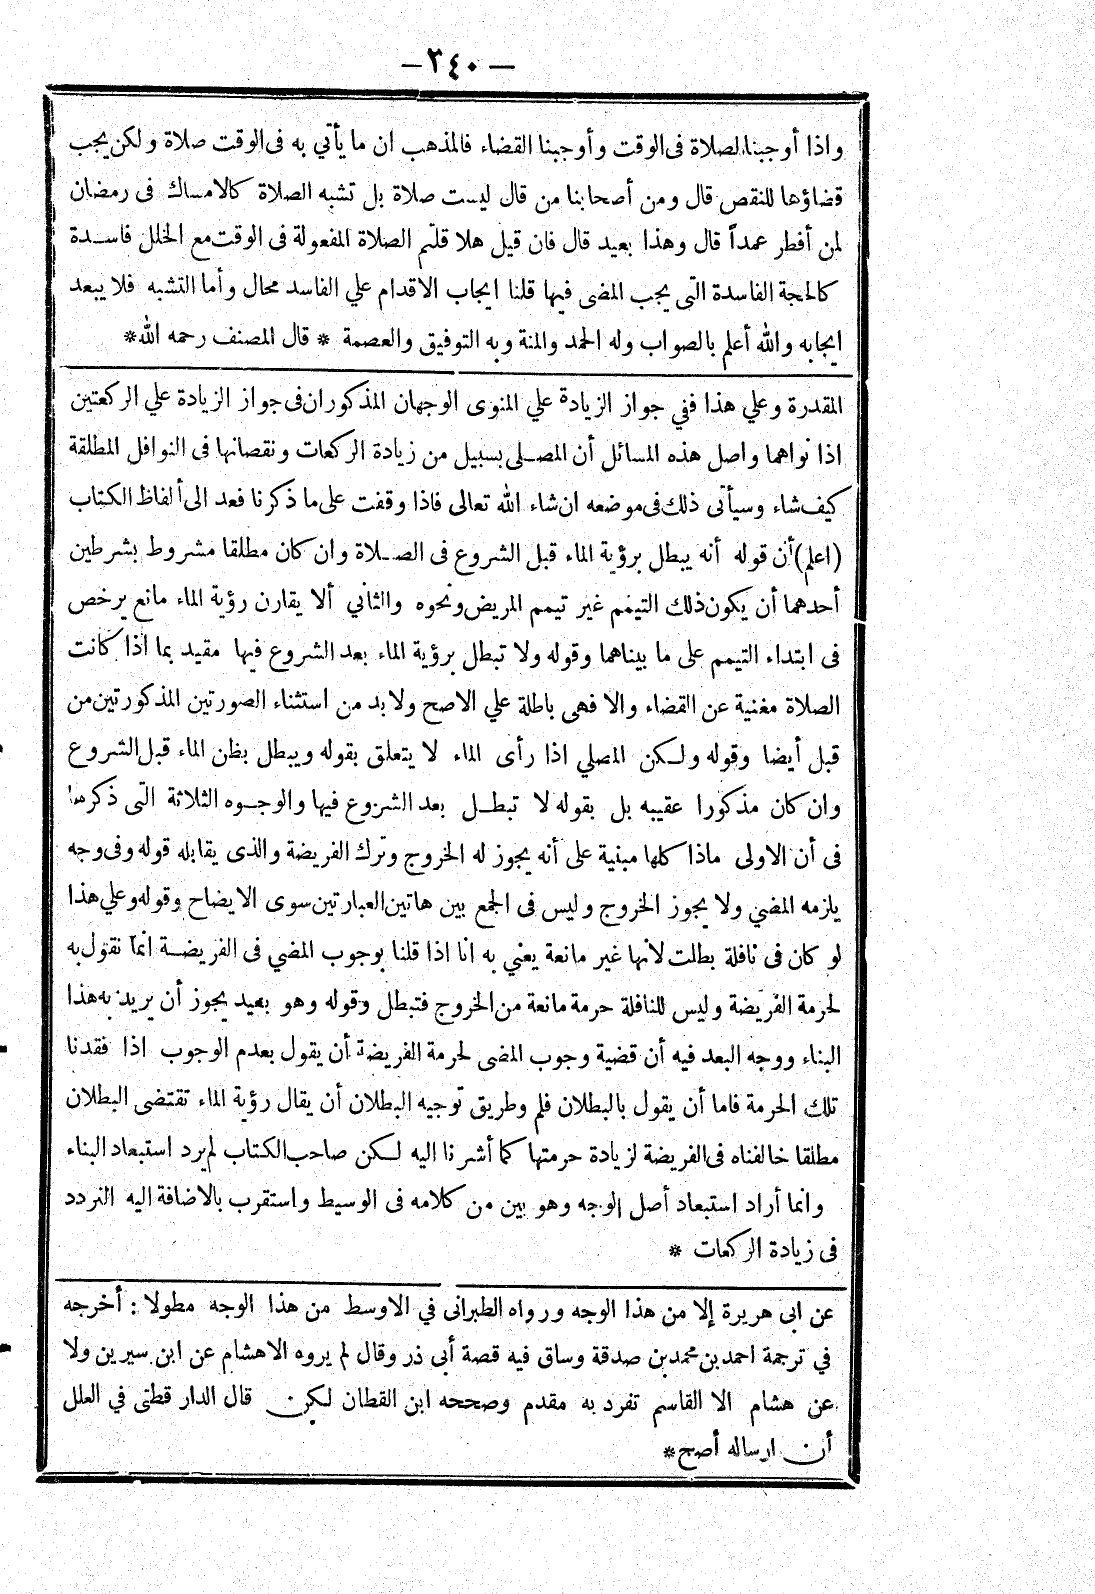 — ٣٤٠ —
واذا أوجبنا الصلاة فى الوقت وأوجبنا القضاء فالمذهب ان ما يأتي به فى الوقت صلاة ولكن يجب
قضاؤها للنقص قال ومن أصحابنا من قال ليست صلاة بل تشبه الصلاة كالامساك فى رمضان
لمن أفطر عمداً قال وهذا بعيد قال فان قيل هلا قلتم الصلاة المفعولة فى الوقت مع الخلل فاسدة
كالحجة الفاسدة التى يجب المضى فيها قلنا ايجاب الاقدام علي الفاسد محال وأما التشبه فلا يبعد
ايجابه والله أعلم بالصواب وله الحمد والمنة وبه التوفيق والعصمة * قال المصنف رحمه الله*
المقدرة وعلي هذا ففي جواز الزيادة علي المنوى الوجهان المذكوران فى جواز الزيادة علي الركعتين
اذا نواهما واصل هذه المسائل أن المصلى بسبيل من زيادة الركعات ونقصانها فى النوافل المطلقة
كيف شاء وسيأتى ذلك فى موضعه ان شاء الله تعالى فاذا وقفت على ما ذكرنا فعد الى ألفاظ الكتاب
(اعلم) أن قوله أنه يبطل برؤية الماء قبل الشروع فى الصلاة وان كان مطلقا مشروط بشرطين
أحدهما أن يكون ذلك التيمم غير تيمم المريض ونحوه والثاني ألا يقارن رؤية الماء مانع يرخص
فى ابتداء التيمم على ما بيناهما وقوله ولا تبطل برؤية الماء بعد الشروع فيها مقيد بما اذا كانت
الصلاة مغنية عن القضاء والا فهى باطلة علي الاصح ولا بد من استثناء الصورتين المذكورتين من
قبل أيضا وقوله ولكن المصلي اذا رأى الماء لا يتعلق بقوله ويبطل بظن الماء قبل الشروع
وان كان مذكورا عقيبه بل بقوله لا تبطل بعد الشروع فيها والوجوه الثلاثة التى ذكرها
فى أن الاولى ماذا كلها مبنية على أنه يجوز له الخروج وترك الفريضة والذى يقابله قوله وفى وجه
يلزمه المضي ولا يجوز الخروج وليس فى الجمع بين هاتين العبارتين سوى الايضاح وقوله وعلي هذا
لو كان فى نافلة بطلت لانها غير مانعة يعني به انا اذا قلنا بوجوب المضي فى الفريضة انما نقول به
لحرمة الفريضة وليس للنافلة حرمة مانعة من الخروج فتبطل وقوله وهو بعيد يجوز أن يريد به هذا
البناء ووجه البعد فيه أن قضية وجوب المضى لحرمة الفريضة أن يقول بعدم الوجوب اذا فقدنا
تلك الحرمة فاما أن يقول بالبطلان فلم وطريق توجيه البطلان أن يقال رؤية الماء تقتضى البطلان
مطلقا خالفناه فى الفريضة لزيادة حرمتها كما أشرنا اليه لكن صاحب الكتاب لم يرد استبعاد البناء
وانما أراد استبعاد أصل الوجه وهو بين من كلامه فى الوسيط واستقرب بالاضافة اليه التردد
فى زيادة الركعات *
عن ابى هريرة إلا من هذا الوجه ورواه الطبرانى في الاوسط من هذا الوجه مطولا : أخرجه
في ترجمة احمد بن محمد بن صدقة وساق فيه قصة أبى ذر وقال لم يروه الاهشام عن ابن سيرين ولا
عن هشام الا القاسم تفرد به مقدم وصححه ابن القطان لكن قال الدار قطنى في العلل
أن ارساله أصح*